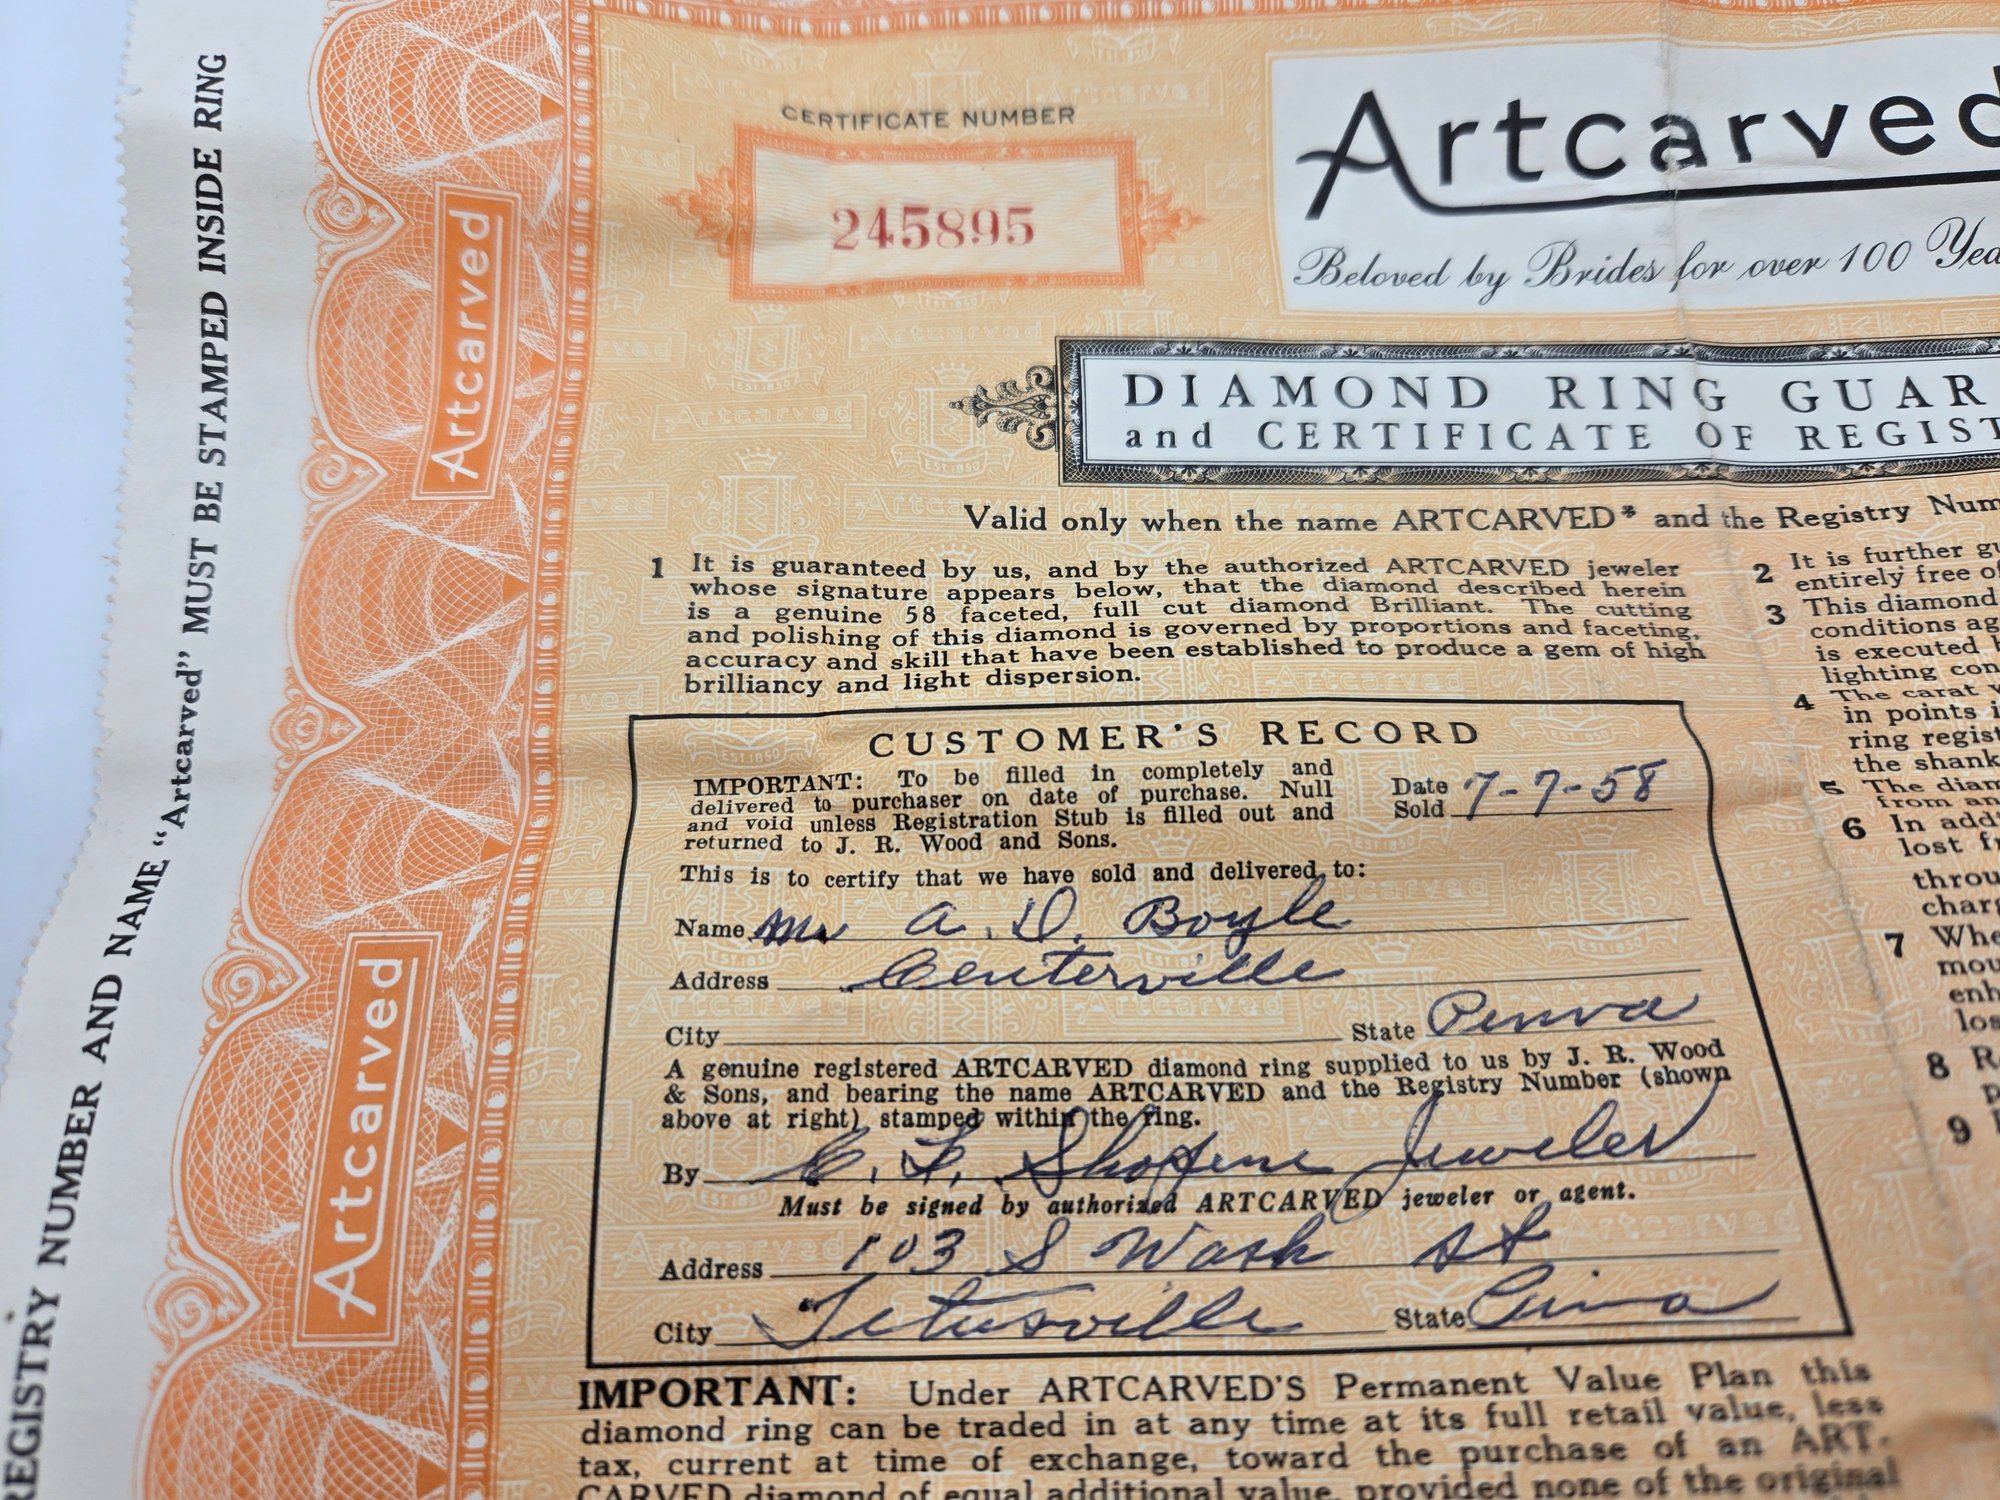 REGISTRY NUMBER AND NAME "Artcarved" MUST BE STAMPED INSIDE RING
Artcarved
Artcarved
CERTIFICATE NUMBER
245895
Artcarved
Beloved by Brides for over 100 Yea
DIAMOND RING GUAR
and CERTIFICATE OF REGIST
Valid only when the name ARTCARVED* and the Registry Num
1 It is guaranteed by us, and by the authorized ARTCARVED jeweler
whose signature appears below, that the diamond described herein
is a genuine 58 faceted, full cut diamond Brilliant. The cutting
and polishing of this diamond is governed by proportions and faceting,
accuracy and skill that have been established to produce a gem of high
brilliancy and light dispersion.
2 It is further gu
entirely free of
3 This diamond
conditions ag
is executed b
lighting con
4 The carat w
in points i
ring regist
the shank
5 The diam
from an
6 In add
lost fr
throu
charg
7 Whe
mou
enh
los
8 R
p
9
CUSTOMER'S RECORD
IMPORTANT: To be filled in completely and
delivered to purchaser on date of purchase. Null
and void unless Registration Stub is filled out and
returned to J. R. Wood and Sons.
Date
Sold 7-7-58
This is to certify that we have sold and delivered to:
Name Mr A. D. Boyle
Address Centerville
City State Penna
A genuine registered ARTCARVED diamond ring supplied to us by J. R. Wood
& Sons, and bearing the name ARTCARVED and the Registry Number (shown
above at right), stamped within the ring.
By C. F. Jeweler
Must be signed by authorized ARTCARVED jeweler or agent.
Address 103 S Wash St
City Titusville State Penna
IMPORTANT: Under ARTCARVED'S Permanent Value Plan this
diamond ring can be traded in at any time at its full retail value, less
tax, current at time of exchange, toward the purchase of an ART-
CARVED diamond of equal additional value, provided none of the original